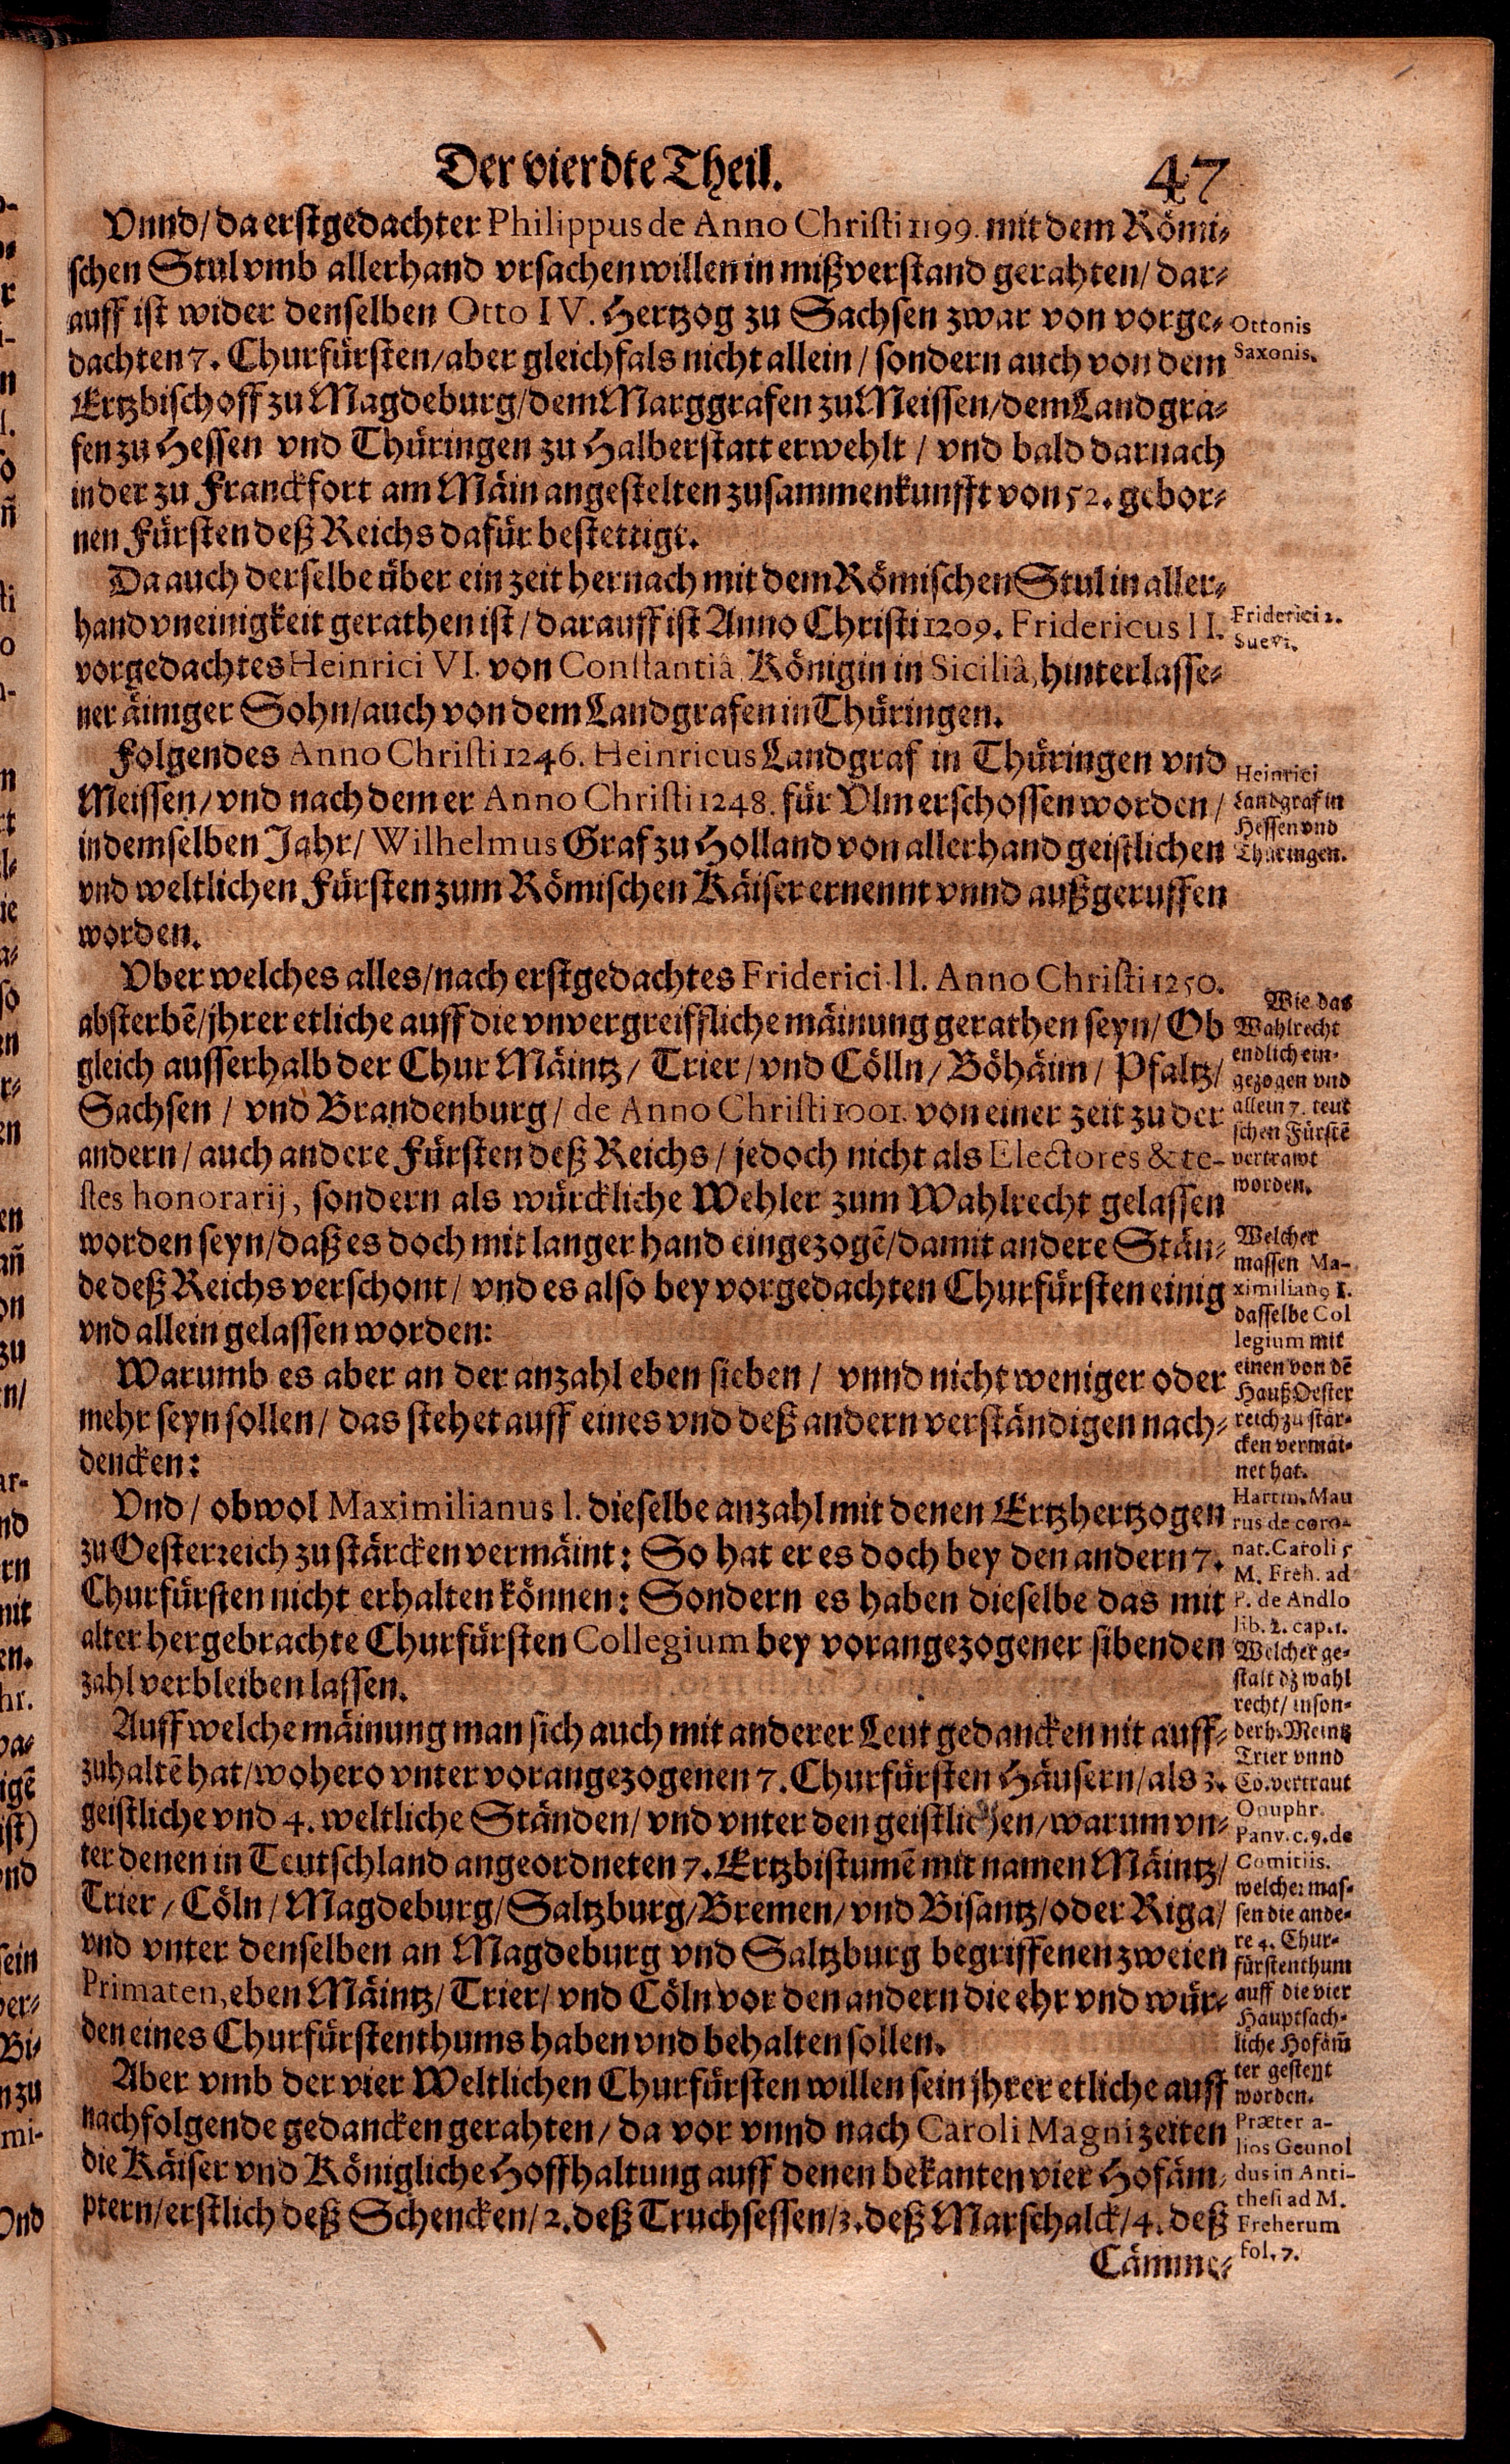 Der vierdte Theil. 47
Vnnd/ da erstgedachter Philippus de Anno Christi 1199. mit dem Römi-
schen Stul vmb allerhand vrsachen willen in mißverstand gerahten/ dar-
auff ist wider denselben Otto IV. Hertzog zu Sachsen zwar von vorge-
dachten 7. Churfürsten/ aber gleichfals nicht allein/ sondern auch von dem
Ertzbischoff zu Magdeburg/ dem Marggrafen zu Meissen/ dem Landgra-
fen zu Hessen vnd Thüringen zu Halberstatt erwehlt/ vnd bald darnach
in der zu Franckfort am Mäin angestelten zusammenkunfft von 52. gebor-
nen Fürsten deß Reichs dafür bestettigt.
Da auch derselbe über ein zeit hernach mit dem Römischen Stul in aller-
hand vneinigkeit gerathen ist/ darauff ist Anno Christi 1209. Fridericus II.
vorgedachtes Heinrici VI. von Constantiâ, Königin in Siciliâ, hinterlasse-
ner äiniger Sohn/ auch von dem Landgrafen in Thüringen.
Folgendes Anno Christi 1246. Heinricus Landgraf in Thüringen vnd
Meissen/ vnd nach dem er Anno Christi 1248. für Vlm erschossen worden/
in demselben Jahr/ Wilhelmus Graf zu Holland von allerhand geistlichen
vnd weltlichen Fürsten zum Römischen Käiser ernennt vnnd außgeruffen
worden.
Vber welches alles/ nach erstgedachtes Friderici II. Anno Christi 1250.
absterbē/ jhrer etliche auff die vnvergreiffliche mäinung gerathen seyn/ Ob
gleich ausserhalb der Chur Mäintz/ Trier/ vnd Cölln/ Böhäim/ Pfaltz/
Sachsen/ vnd Brandenburg/ de Anno Christi 1001. von einer zeit zu der
andern/ auch andere Fürsten deß Reichs/ jedoch nicht als Electores & te-
stes honorarij, sondern als würckliche Wehler zum Wahlrecht gelassen
worden seyn/ daß es doch mit langer hand eingezogē/ damit andere Stän-
de deß Reichs verschont/ vnd es also bey vorgedachten Churfürsten einig
vnd allein gelassen worden:
Warumb es aber an der anzahl eben sieben/ vnnd nicht weniger oder
mehr seyn sollen/ das stehet auff eines vnd deß andern verständigen nach-
dencken:
Vnd/ obwol Maximilianus I. dieselbe anzahl mit denen Ertzhertzogen
zu Oesterreich zu stärcken vermäint: So hat er es doch bey den andern 7.
Churfürsten nicht erhalten können: Sondern es haben dieselbe das mit
alter hergebrachte Churfürsten Collegium bey vorangezogener sibenden
zahl verbleiben lassen.
Auff welche mäinung man sich auch mit anderer Leut gedancken nit auff-
zuhaltē hat/ wohero vnter vorangezogenen 7. Churfürsten Häusern/ als 3.
geistliche vnd 4. weltliche Ständen/ vnd vnter den geistlichen/ warum vn-
ter denen in Teutschland angeordneten 7. Ertzbistumē mit namen Mäintz/
Trier/ Cöln/ Magdeburg/ Saltzburg/ Bremen/ vnd Bisantz/ oder Riga/
vnd vnter denselben an Magdeburg vnd Saltzburg begriffenen zweien
Primaten, eben Mäintz/ Trier/ vnd Cöln vor den andern die ehr vnd wür-
den eines Churfürstenthums haben vnd behalten sollen.
Aber vmb der vier Weltlichen Churfürsten willen sein jhrer etliche auff
nachfolgende gedancken gerahten/ da vor vnnd nach Caroli Magni zeiten
die Käiser vnd Königliche Hoffhaltung auff denen bekanten vier Hofäm-
ptern/ erstlich deß Schencken/ 2. deß Truchsessen/ 3. deß Marschalck/ 4. deß
Cämme-
Ottonis
Saxonis.
Friderici 2.
Suevi.
Heinrici
Landgraf in
Hessen vnd
Thüringen.
Wie das
Wahlrecht
endlich ein-
gezogen vnd
allein 7. teut
schen Fürstē
vertrawt
worden.
Welcher
massen Ma-
ximilianꝰ I.
dasselbe Col
legium mit
einen von dē
Hauß Oester
reich zu stär-
cken vermäi-
net hat.
Hartm. Mau
rus de coro-
nat. Caroli 5
M. Freh. ad
P. de Andlo
lib. 2. cap. 1.
Welcher ge-
stalt dz wahl
recht/ inson-
derh. Meintz
Trier vnnd
Cö. vertraut
Onuphr.
Panv. c. 9. de
Comitiis.
welcher mas-
sen die ande-
re 4. Chur-
fürstenthum
auff die vier
Hauptsach-
liche Hofäm̄
ter gestellt
worden.
Præter a-
lios Geunol
dus in Anti-
thesi ad M.
Freherum
fol. 7.